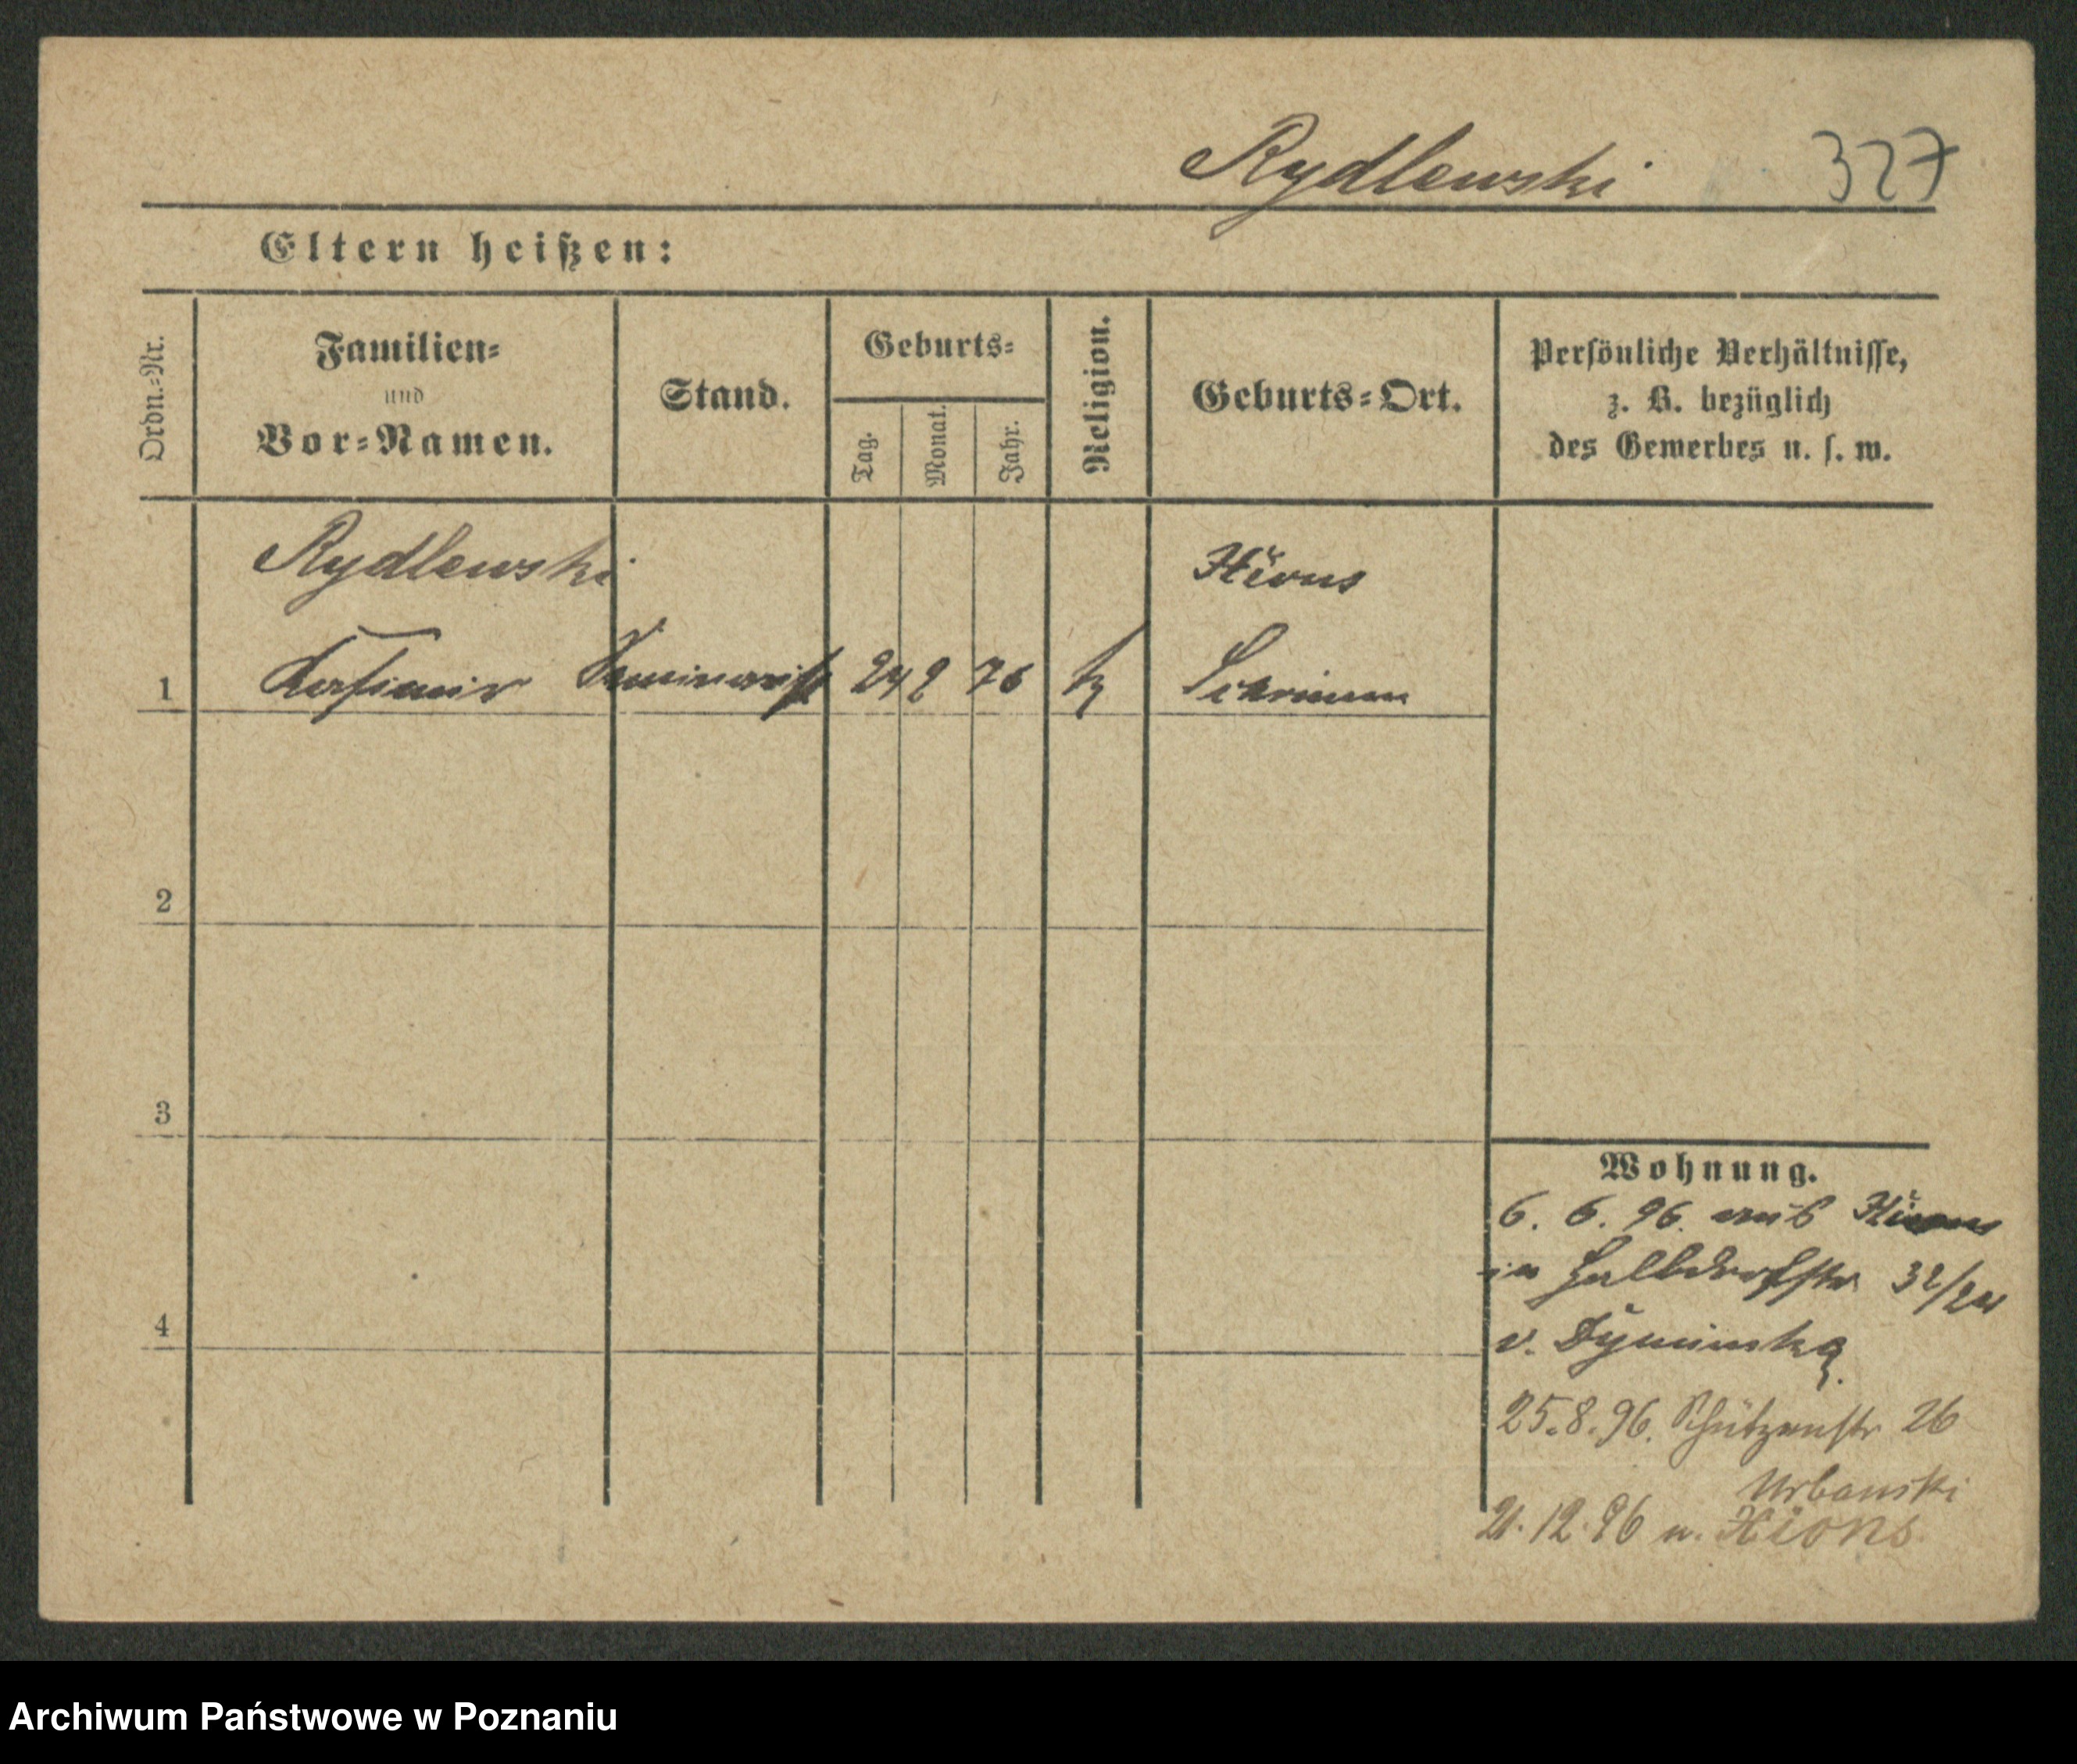 Rydlewski 327
Eltern heißen:
Ordn.=Nr.
Familien=
und
Vor=Namen.
Stand.
Geburts=
Tag.
Monat.
Jahr.
Religion.
Geburts=Ort.
Persönliche Verhältnisse,
z. B. bezüglich
des Gewerbes u. s. w.
Rydlewski Xions
1 Kasimir Seminarist 24 2 76 k Schrimm
2
3
4
Wohnung.
6. 6. 96. aus Xions
in Halbdorfstr 32/
v.
25.8.96. Schützenstr 26
Urbanski
21.12.96 n. Xions
Archiwum Państwowe w Poznaniu